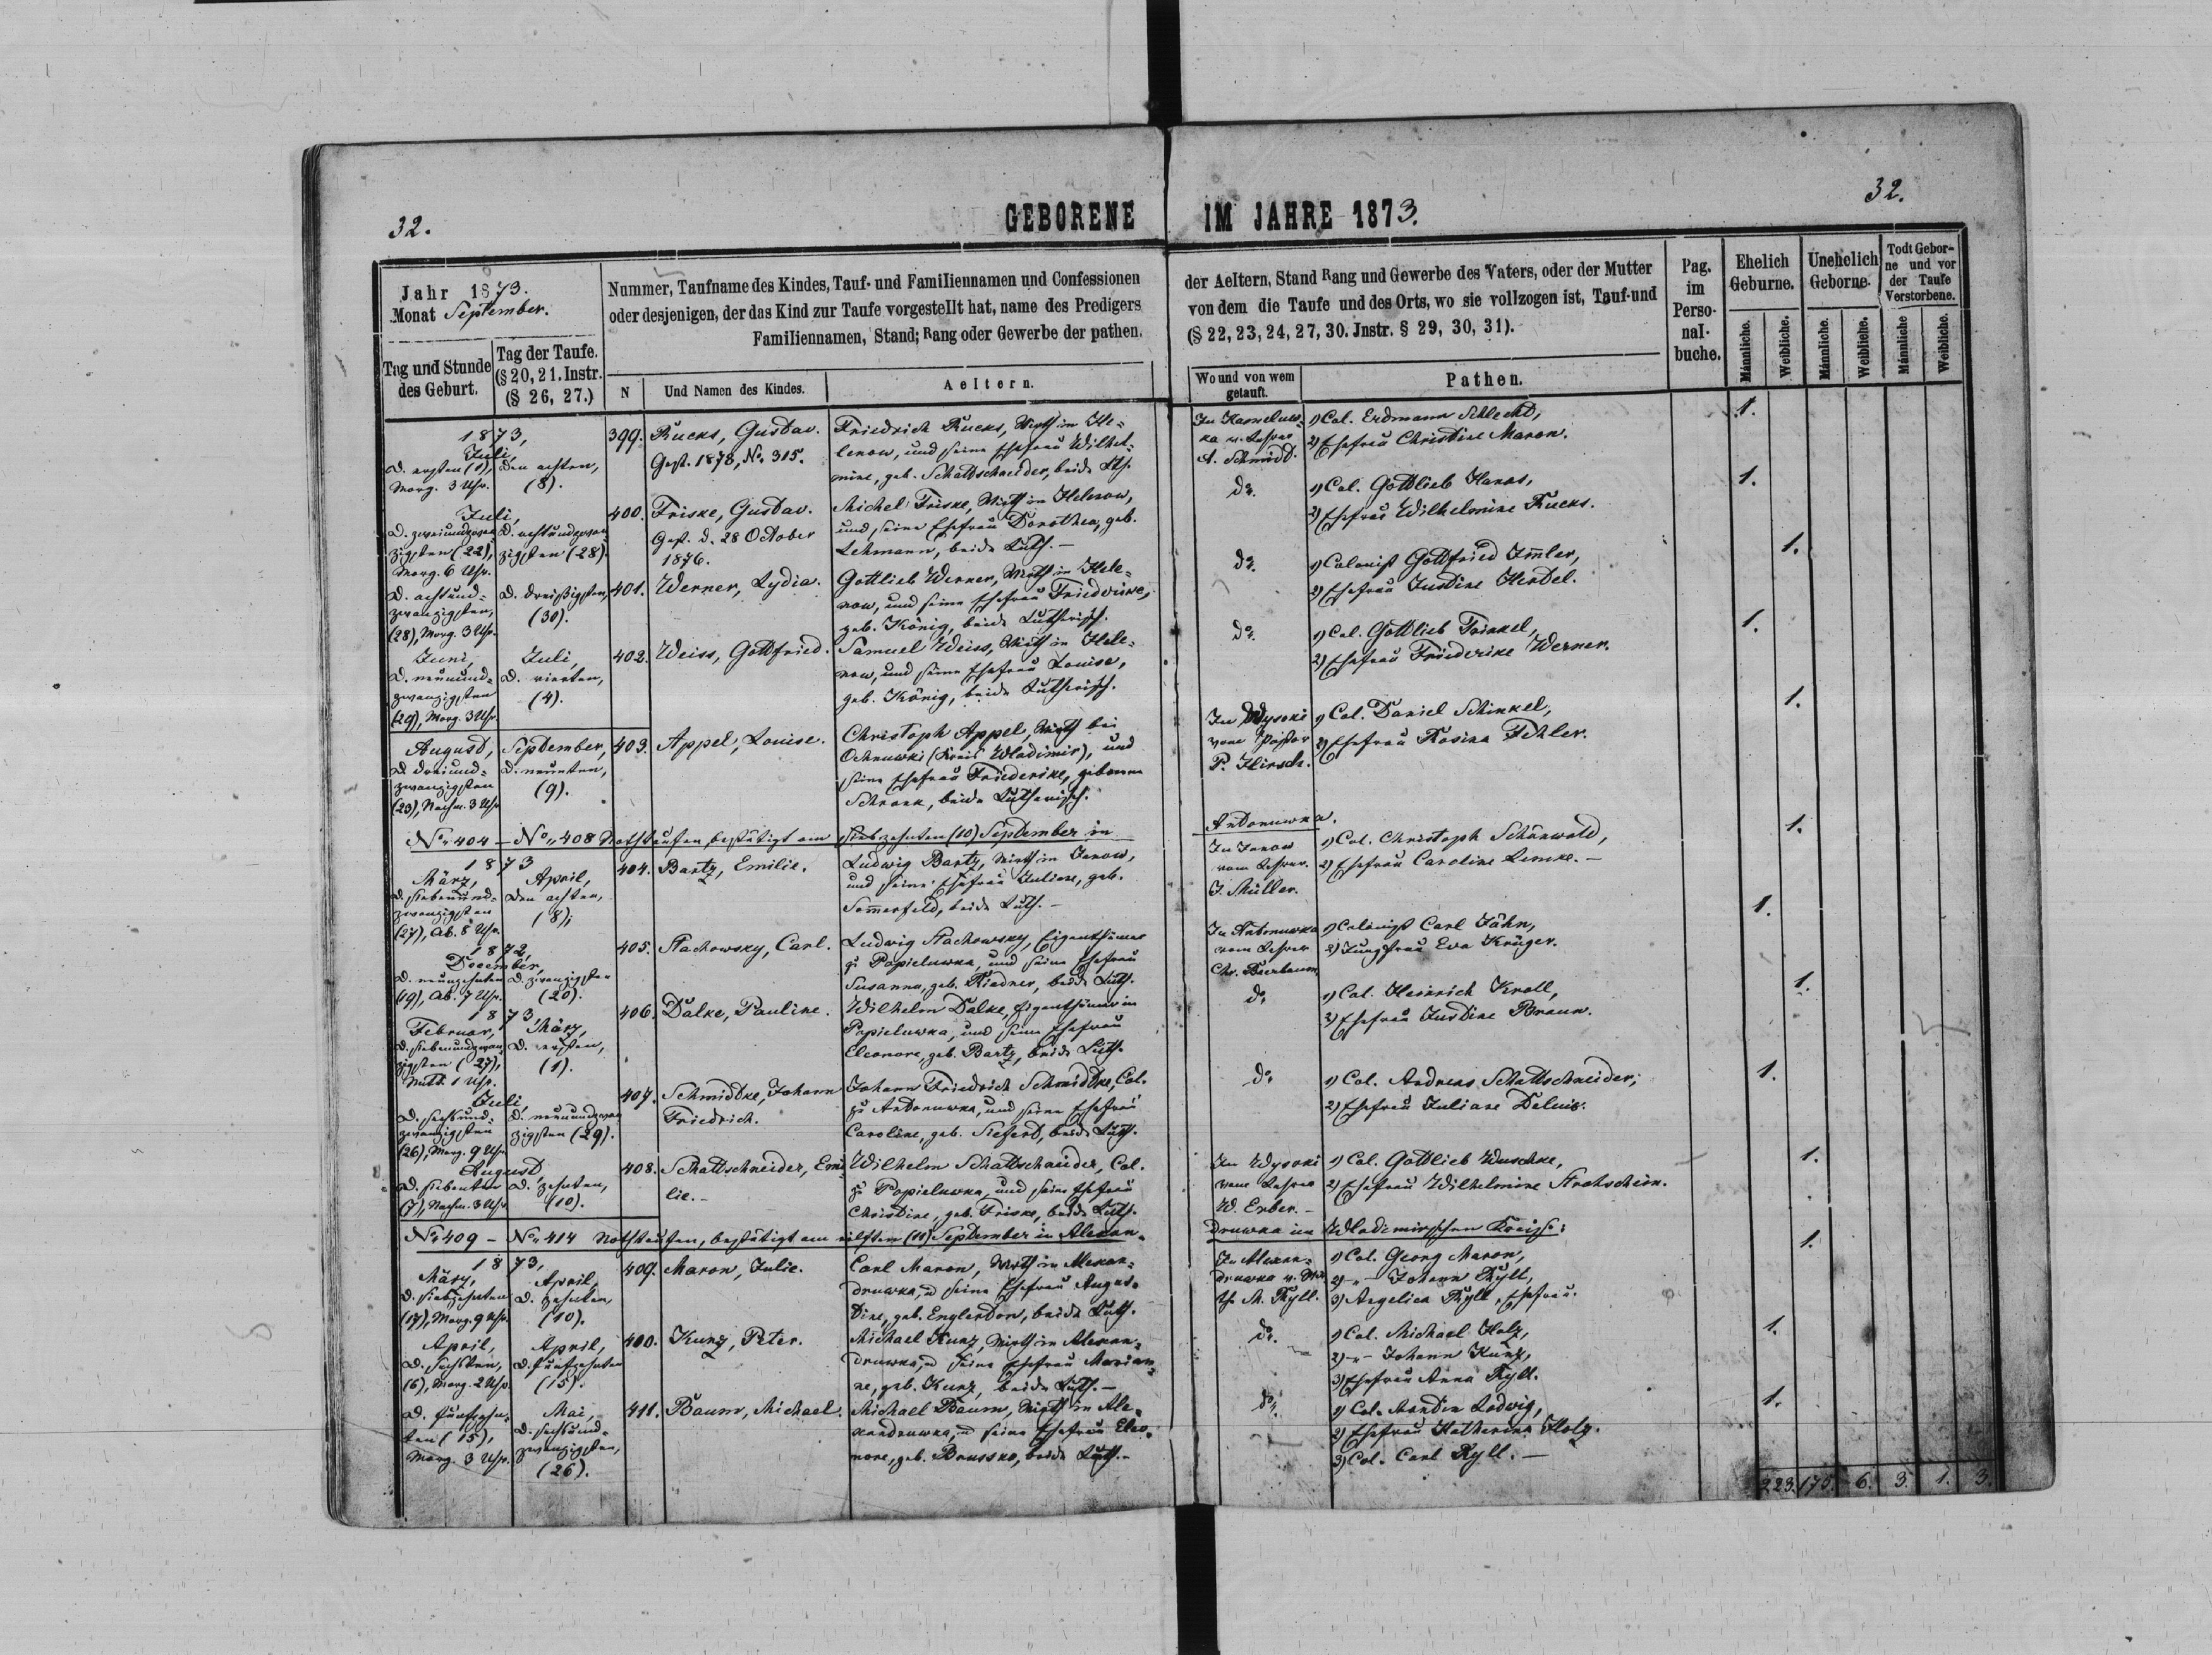 32.
GEBORENE IM JAHRE 1873.
32.
Jahr 1873.
Monat September.
Tag und Stunde
des Geburt.
Tag der Taufe.
(§ 20, 21. Instr.
(§ 26, 27.)
Nummer, Taufname des Kindes, Tauf- und Familiennamen und Confessionen
oder desjenigen, der das Kind zur Taufe vorgestellt hat, name des Predigers
Familiennamen, Stand; Rang oder Gewerbe der pathen.
N
Und Namen des Kindes.
Aeltern.
der Aeltern, Stand Rang und Gewerbe des Vaters, oder der Mutter
von dem die Taufe und des Orts, wo sie vollzogen ist, Tauf-und
(§ 22, 23, 24, 27, 30. Jnstr. § 29, 30, 31).
Wo und von wem
getauft.
Pathen.
Pag.
im
Perso-
nal-
buche.
Ehelich
Geburne.
Unehelich
Geborne.
Todt Gebor-
ne und vor
der Taufe
Verstorbene.
Männliche.
Weibliche.
Männliche.
Weibliche.
Männliche
Weibliche.
1873,
Juli,
D. ersten (1),
Morg. 3 Uhr.
den achten,
(8).
399.
Rucks, Gustav.
Gest. 1878, No. 315.
Friedrich Rucks, Wirth in He-
lenow, und seine Ehefrau Wilhel-
mine, geb. Schattschneider, beide Lth.
In
ka v. Lehrer
A. Schmidt.
1) Col. Erdmann Schlecht,
2) Ehefrau Christine Maron.
1.
Juli,
D. zweiundzwan-
zigsten (22),
Morg. 6 Uhr.
D. achtundzwan-
zigsten (28)
400.
Friske, Gustav.
Gest. d. 28 October
1876.
Michel Friske, Wirth in Helenow,
und seine Ehefrau Dorothea, geb.
Lehmann, beide Luth. -
do.
1) Col. Gottlieb Hanas,
2) Ehefrau Wilhelmine Rucks.
1.
D. achtund-
zwanzigsten,
(28), Morg. 3 Uhr.
D. dreißigsten,
(30).
401.
Werner, Lydia.
Gottlieb Werner, Wirth in Hele-
now, und seine Ehefrau Friedricke,
geb. König, beide Lutherisch.
do.
1) Colonist Gottfried Imler,
2) Ehefrau Justine Hertel.
1.
Juni,
D. neunund-
zwanzigsten
(29), Morg. 3 Uhr.
Juli,
D. vierten,
(4).
402.
Weiss, Gottfried.
Samuel Weiss, Wirth in Hele-
now, und seine Ehefrau Louise,
geb. König, beide Lutherisch.
do.
1) Col. Gottlieb Trinkel,
2) Ehefrau Friederike Werner.
1.
August,
D. dreiund-
zwanzigsten
(23), Nachm. 3 Uhr
September,
D. neunten,
(9).
403.
Appel, Louise.
Christoph Appel, Wirth bei
Ochnuwki (Kreis Wladimir), und
seine Ehefrau Friederike, geborene
Schronk, beide Lutherisch.
In Wysoki
vom Pastor
P. Hirsch.
1) Col. Daniel Schinkel,
2) Ehefrau Rosina Fehler.
1.
No. 404 - No. 408 Nothtaufen, bestätigt am (10) September in
Antonuwka.
1873
März,
D. siebenund-
zwanzigsten
(27), Ab. 8 Uhr.
April,
den achten,
(8);
404.
Bartz, Emilie.
Ludwig Bartz, Wirth in Janow,
und seine Ehefrau Juliane, geb.
Somerfeld, beide Luth. -
In Janow
vom Lehrer.
J. Müller.
1) Col. Christoph Schönwald,
2) Ehefrau Caroline Lemke. -
1.
1872,
December,
D. neunzehnten
(19), Ab. 7 Uhr.
D. zwanzigsten
(20).
405.
Stachowsky, Carl.
Ludwig Stachowsky, Eigenthümer
zu Popieluwka, und seine Ehefrau
Susanna, geb. Riedner, beide Luth.
In Antonuwka
vom Lehrer
Chr. Bierbaum
1) Colonist Carl Jähn,
2) Jungfrau Eva Krüger.
1.
1873,
Februar,
D. siebenundzwan-
zigsten (27),
Mitt. 1 Uhr.
März,
D. ersten,
(1).
406.
Dalke, Pauline.
Wilhelm Dalke, Eigenthümer in
Popieluwka, und seine Ehefrau
Eleonore, geb. Bartz, beide Luth.
do
1) Col. Heinrich Kroll,
2) Ehefrau Justine Braun.
1.
Juli,
D. sechsund-
zwanzigsten
(26), Morg. 9 Uhr
D. neunundzwan-
zigsten (29).
407.
Schmidtke, Johann
Friedrich.
Johann Friedrich Schmidtke, Col.
zu Antonuwka, und seine Ehefrau
Caroline, geb. Siefert, beide Luth.
do
1) Col. Andreas Schattschneider;
2) Ehefrau Juliane Deluis.
1.
August,
D. siebenten
(7), Nachm. 3 Uhr
D. zehnten,
(10).
408.
Schattschneider, Emi-
lie. -
Wilhelm Schattschneider, Col.
zu Popieluwka, und seine Ehefrau
Christine, geb. Friske, beide Luth.
In Wysoki
vom Lehrer
W. Erber. -
1) Col. Gottlieb Wuschke,
2) Ehefrau Wilhelmine Strohschein.
1.
No. 409 - No. 414 Nothtaufen, bestätigt am eilften (11) September in Alexan-
druwka im Wladimirschen Kreise:
1873,
März,
D. siebzehnten
(17), Morg. 9 Uhr.
April,
D. zehnten,
(10).
409.
Maron, Julie.
Carl Maron, Wirth in Alexan-
druwka, u seine Ehefrau Augus-
tine, geb. Englerdon, beide Luth.
In Alexan-
druwka v.
M. Ryll.
1) Col. Georg Maron,
2) -"- Johann Ryll,
3) Angelica Ryll, Ehefrau.
1.
April,
D. sechsten,
(6), Morg. 2 Uhr.
April,
D. fünfzehnten
(15).
400.
Kunz, Peter.
Michael Kunz, Wirth in Alexan-
druwka, u seine Ehefrau Marian-
ne, geb. Kunz, beide Luth. -
do.
1) Col. Michael Holz,
2) -"- Johann Kunz,
3) Ehefrau Anna Ryll.
1.
D. fünfzehn-
ten (15),
Morg. 3 Uhr.
Mai,
D. sechsund-
zwanzigsten,
(26).
411.
Baum, Michael.
Michael Baum, Wirth in Ale-
xandruwka, u seine Ehefrau Eleo-
nore, geb. Brussko, beide Luth. -
do.
1) Col. Martin Ladwig,
2) Ehefrau Katherina Holz.
3) Col. Carl Ryll. -
1.
223. 175. 6. 3. 1. 3.